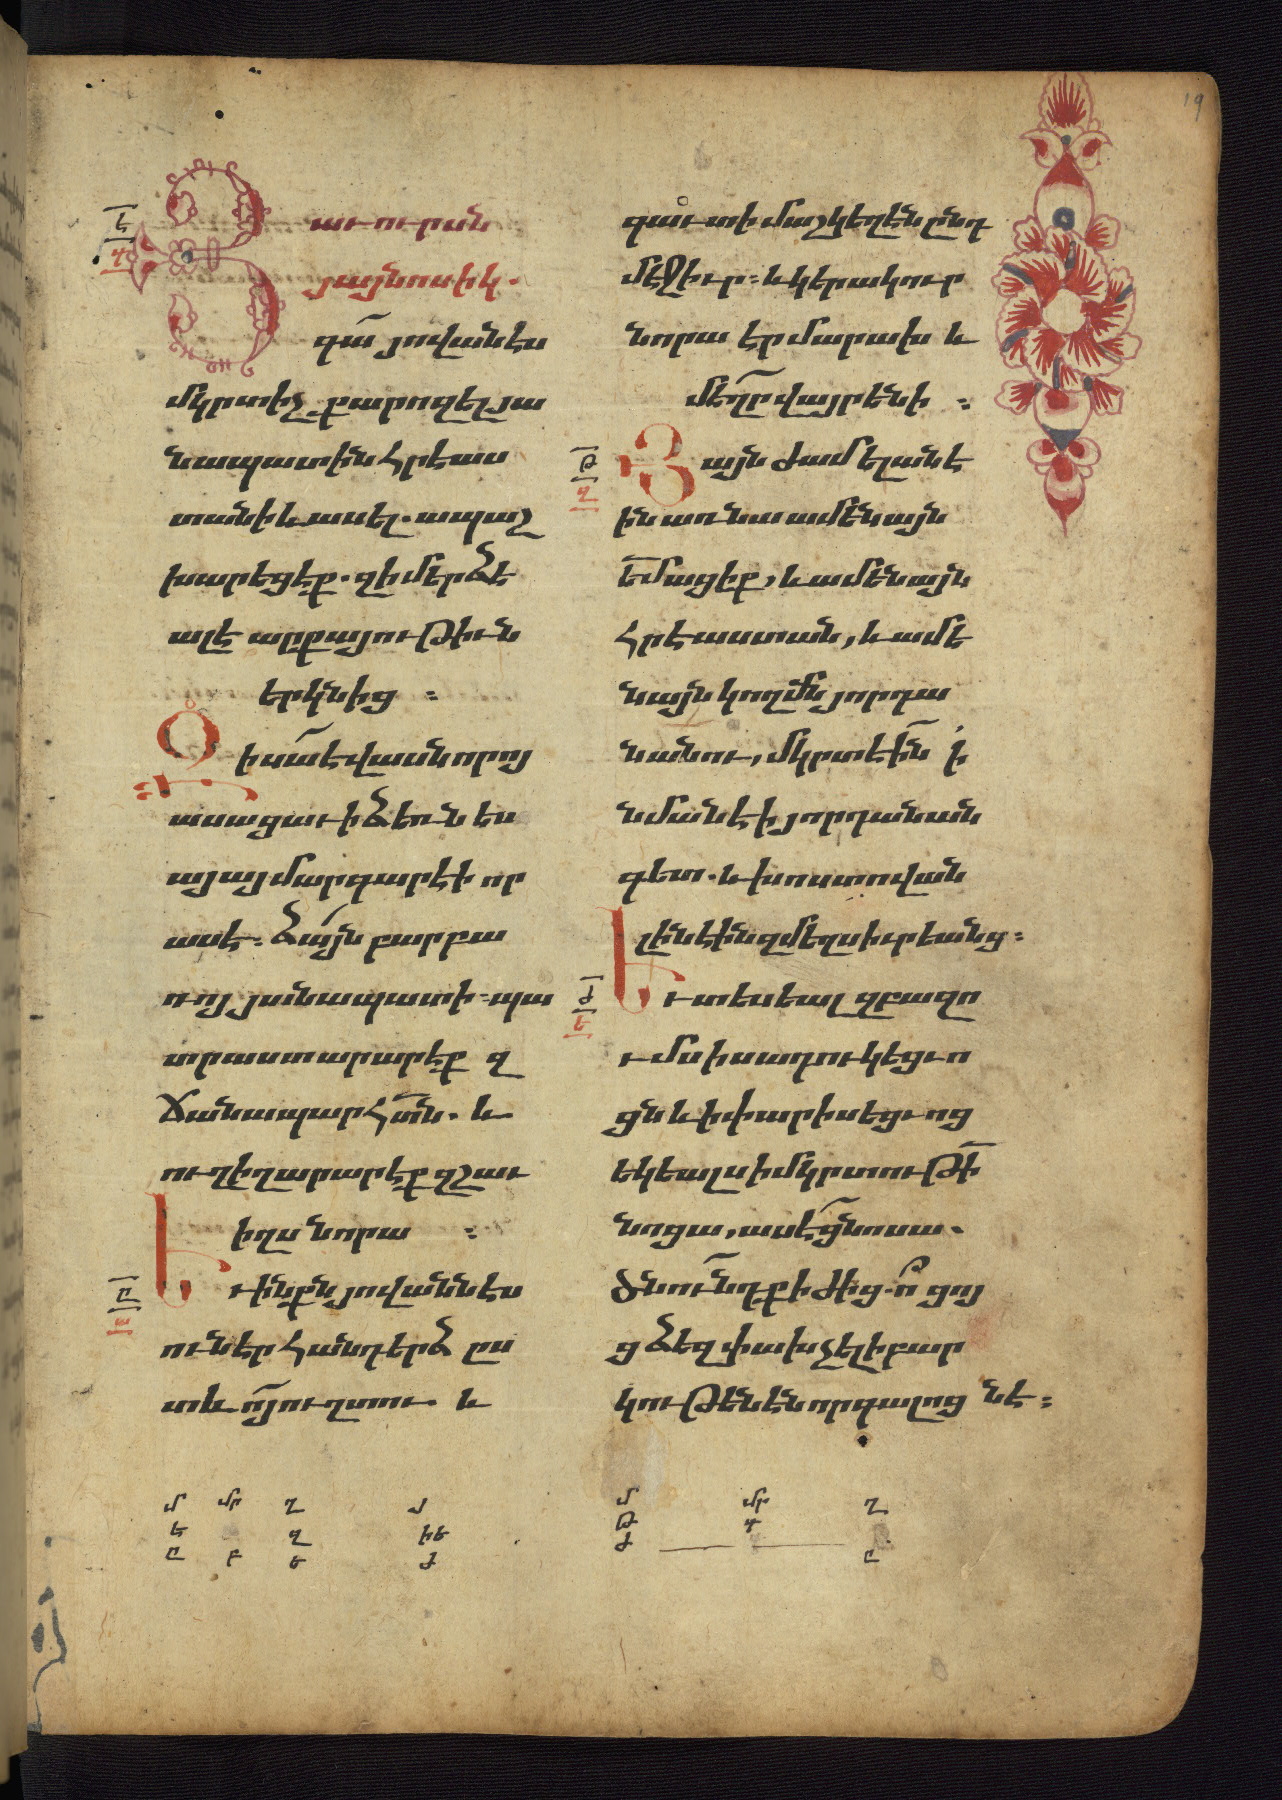 Յաւուրսն
յայնոսիկ.
գա՛ յովանէս
մկրտիչ քարոզել յա
նապատին հրէաս
տանի և ասել. ապաշ
խարեցէք. զի մերձե
ալ է արքայութիւն
երկնից :
Զի սա՛ է վասն որոյ
ասացաւ ի ձեռն ես
այայ մարգարէի որ
ասէ : ձա՛յն բարբա
ռոյ յանապատի : պա
տրաստ արարէք զ
ճանապարհ տն. և
ուղիղ արարէք զշաւ
իղս նորա :
Ե
ւ ինքն յովաննէս
ունէր հանդերձ ըս
տև ո՛յ ուղտու. և
գաւտի մաշկեղէն ընդ
մէջ իւր : և կերակուր
նորա էր մարախ և
մեղր վայրենի :
Յայն ժամ ելանէ
ին առ նա ամենայն
եմացիք, և ամենայն
հրէաստան, և ամե
նայն կողմն յորդա
նանու, մկրտէին ի
նմանէ ի յորդանան
գետ. և խոստովան
լինէին զմեղս իւրեանց :
Ե
ւ տեսեալ զբազո
ւմս ի սադուկեցւո
ցն և ի փարիսեցւոց
եկեալս ի մկրտութի
նոցա, ասէ ցնոսա.
ծնունդք իժից. ո՛ ցոյ
ց ձեզ փախչել ի բար
կութենէն որ գալոց նէ :